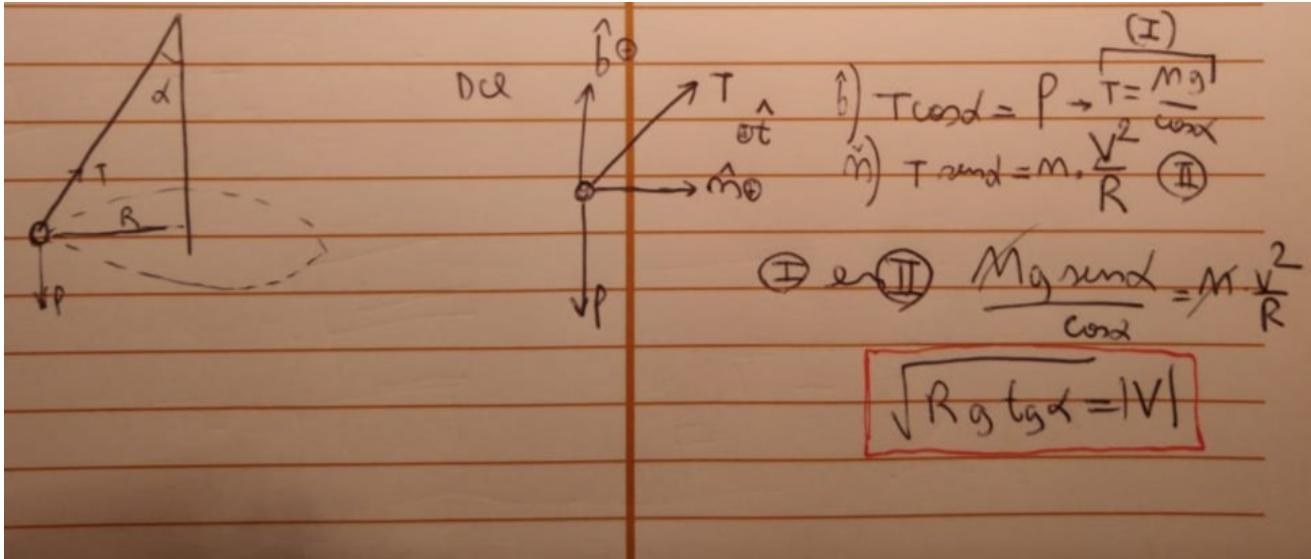 α
T
R
P
DCL
b̂ ⊕
T
⊕ t̂
n̂ ⊕
P
(I)
b̂) T cosα = P → T = Mg / cosα
n̂) T senα = m . V² / R (II)
(I) en (II) Mg senα / cosα = M . V² / R
√(R g tgα) = |V|